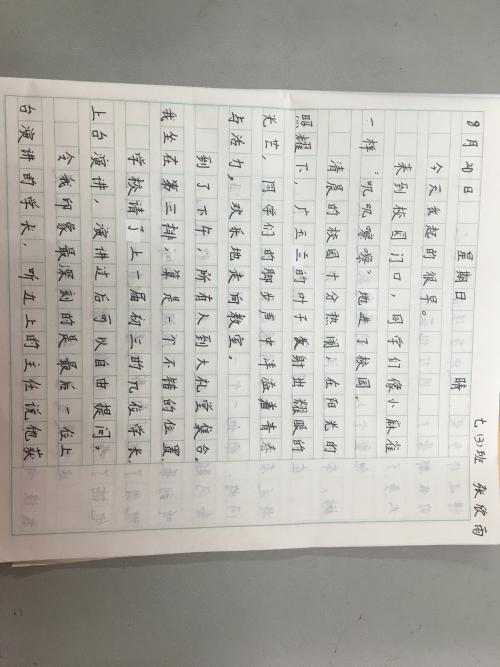 七(3)班 张欣雨
8月20日 星期日 晴
今天我起的很早。
来到校园门口,同学们像小麻雀
一样“叽叽喳喳”地进了校园。
清晨的校园十分热闹,在阳光的
照耀下,广玉兰的叶子发射出耀眼的
光芒,同学们的脚步声中洋溢着青春
与活力,欢乐地走向教室。
到了下午,所有人到大礼堂集合。
我坐在第三排,算是一个不错的位置
学校请了上一届初三的几位学长,
上台演讲,演讲过后可以自由提问,
令我印象最深刻的是最后一位上
台演讲的学长,听边上的主任说他获